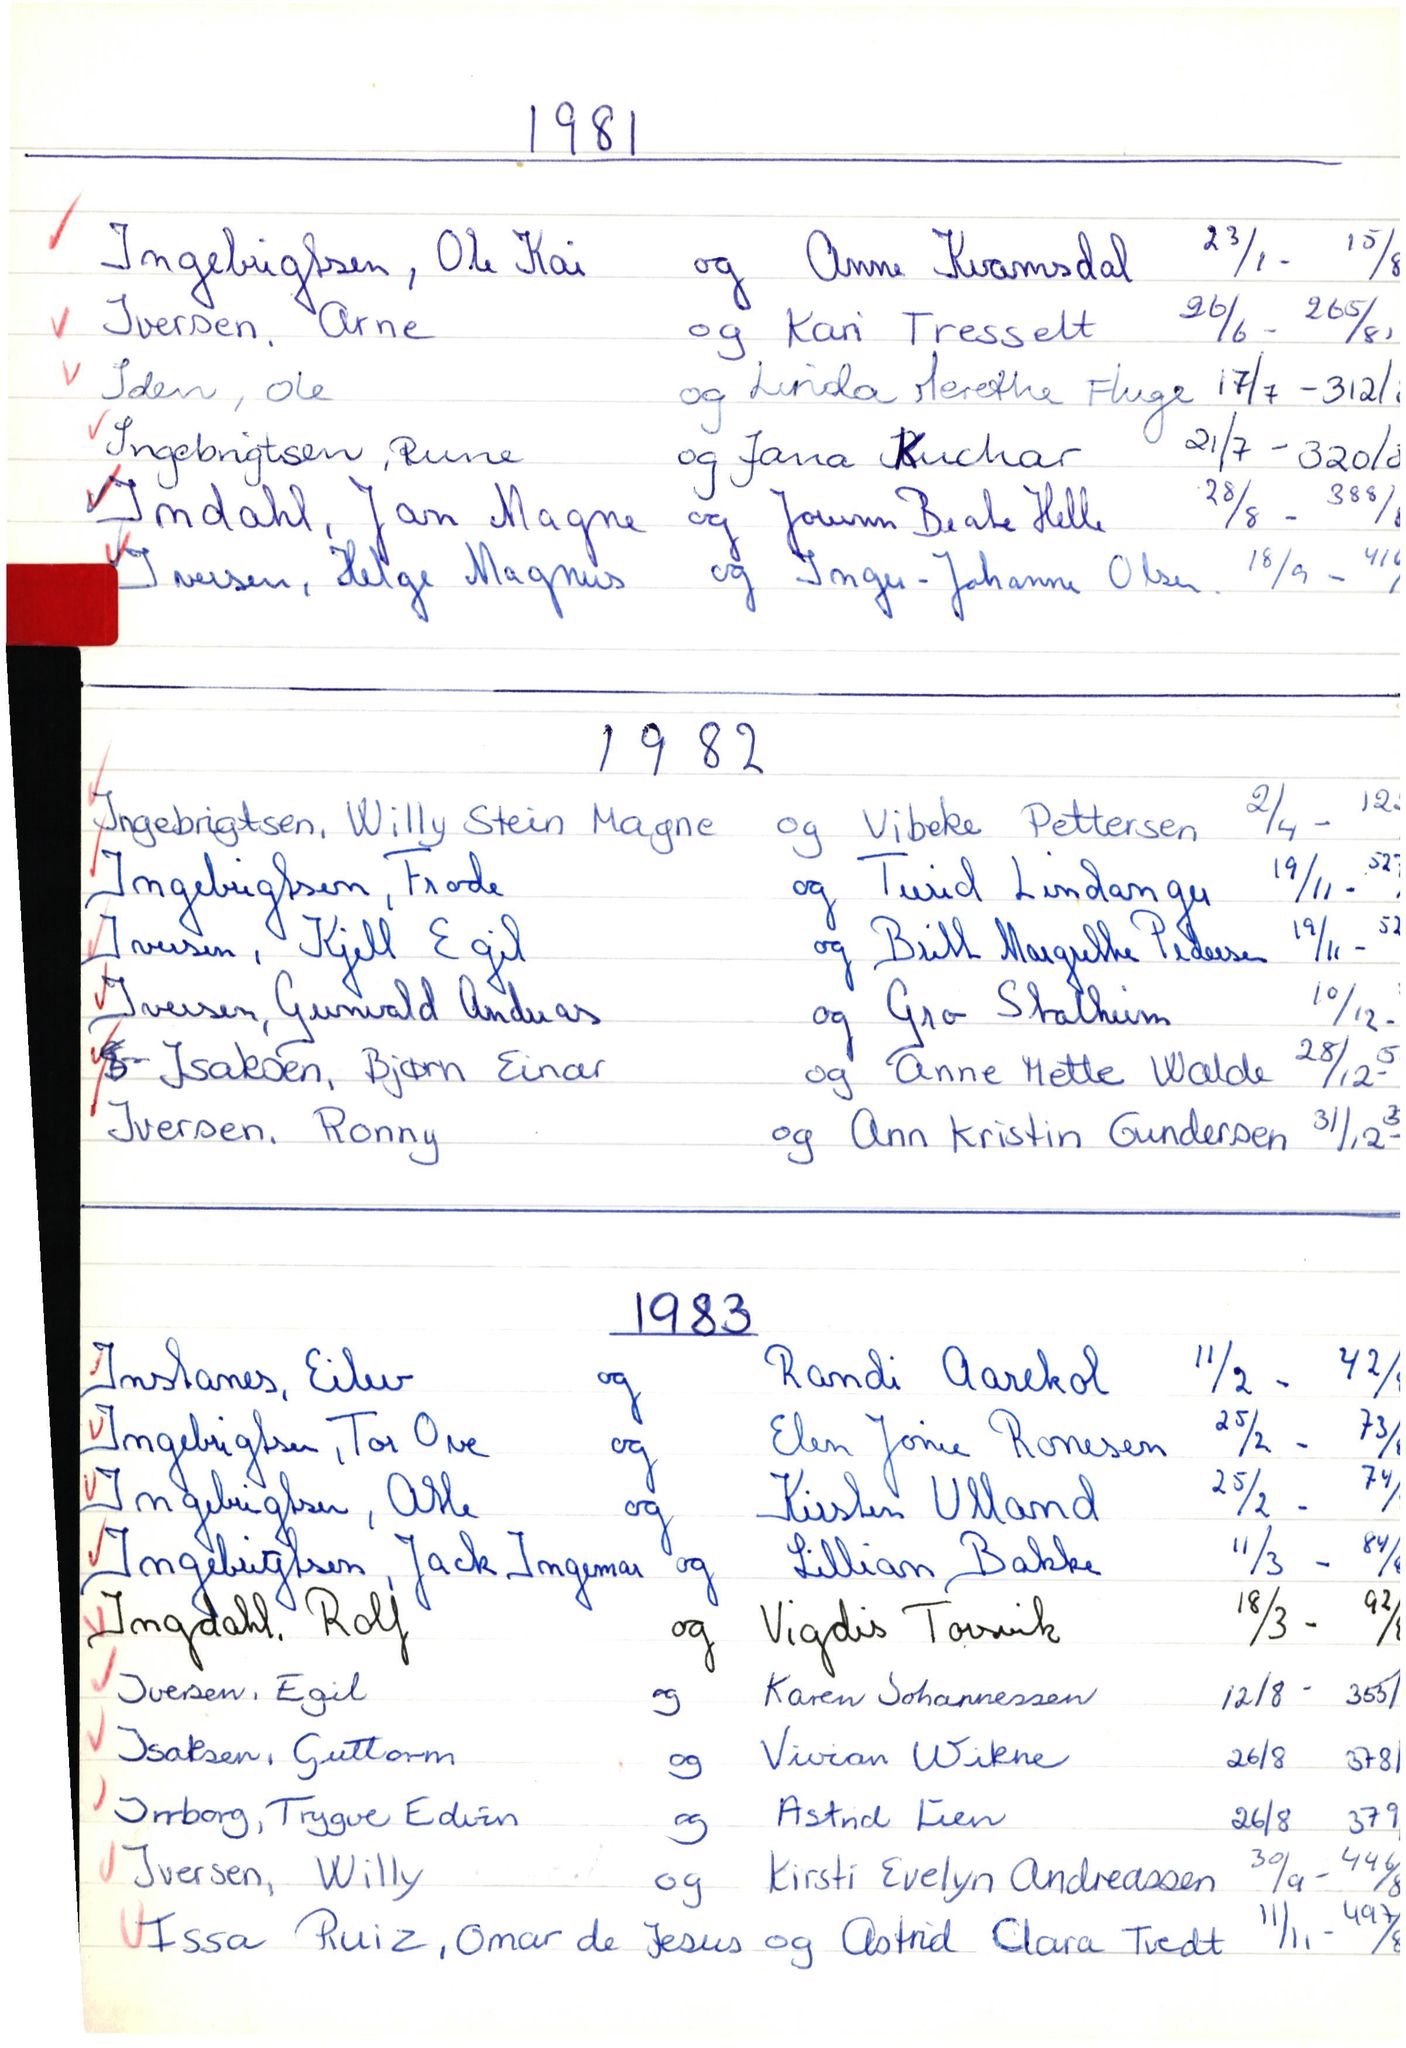 1981
Ingebrigtsen, Ole Kai og Anne Kvamsdal 23/1 - 15/8
Iversen, Arne og Kari Tresselt 26/6 - 265/8
Iden, Ole og Linda Merethe Fluge 17/7 - 312/
Ingebrigtsen, Rune og Jana Kuchar 21/7 - 320/8
Indahl, Jan Magne og Jorunn Beate Helle 28/8 - 388/
Iversen, Helge Magnus og Inger-Johanne Olsen. 18/9 - 41
1982
Ingebrigtsen, Willy Stein Magne og Vibeke Pettersen 2/4 - 12
Ingebrigtsen, Frode og Turid Lindanger 19/11 - 527
Iversen, Kjell Egil og Britt Margrethe Pedersen 19/11 - 52
Iversen, Gunvald Andreas og Gro Stalheim 10/12 -
Isaksen, Bjørn Einar og Anne Mette Walde 28/12 - 5
Iversen, Ronny og Ann Kristin Gundersen 31/12 -
1983
Instanes, Eilev og Randi Aarekol 11/2 - 42/
Ingebrigtsen, Tor Ove og Elen Jonie Ronesen 25/2 - 73/8
Ingebrigtsen, Atle og Kirsten Ulland 25/2 - 74/
Ingebrigtsen, Jack Ingemar og Lillian Bakke 11/3 - 84/8
Ingdahl, Rolf og Vigdis Torsvik 18/3 - 92/8
Iversen, Egil og Karen Johannessen 12/8 - 355/
Isaksen, Guttorm og Vivian Wikne 26/8 378/
Imborg, Trygve Edvin og Astrid Lien 26/8 379
Iversen, Willy og Kirsti Evelyn Andreassen 30/9 - 446/8
Issa Ruiz, Omar de Jesus og Astrid Clara Tvedt 11/11 - 497/8